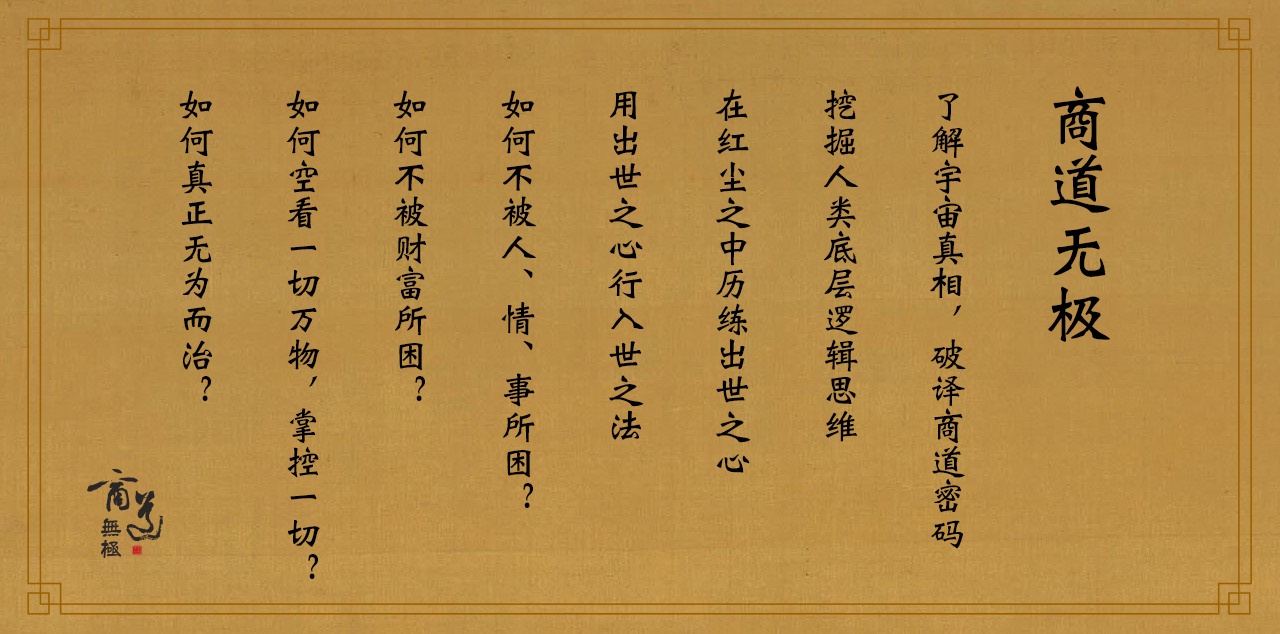 商道无极
了解宇宙真相，破译商道密码
挖掘人类底层逻辑思维
在红尘之中历练出世之心
用出世之心行入世之法
如何不被人、情、事所困？
如何不被财富所困？
如何空看一切万物，掌控一切？
如何真正无为而治？
商道
無極